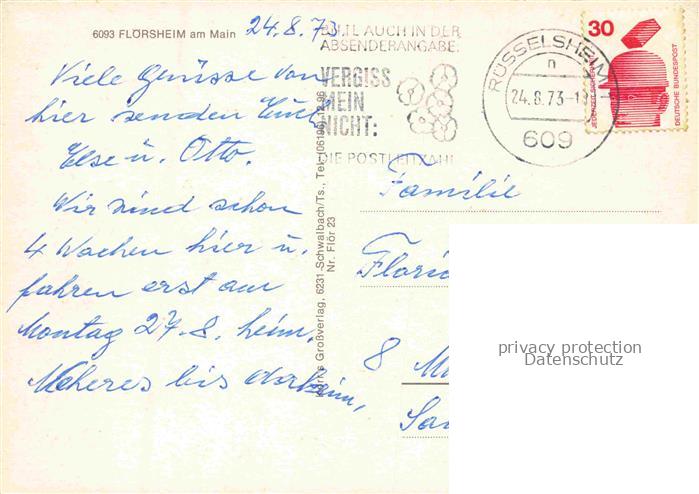 6093 FLÖRSHEIM am Main
24.8.73
Viele Grüsse von
hier senden Euch
Else u. Otto.
Wir sind schon
4 Wochen hier u.
fahren erst am
Montag 27.8. heim.
Meheres bis dorheim,
AUCH IN DER
ABSENDERANGABE:
VERGISS
MEIN
NICHT:
DIE POSTLEITZAHL
RÜSSELSHEIM 1
n
24.8.73-1
609
30
JEDERZEIT SICHERHEIT
DEUTSCHE BUNDESPOST
Großverlag, 6231-Schwalbach/Ts., Tel. (06196)
Nr. Flör 23
Familie
8
privacy protection
Datenschutz